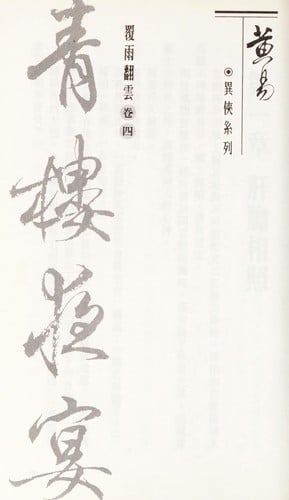 黄易
◉異俠系列
覆雨翻雲卷四
青樓夜宴